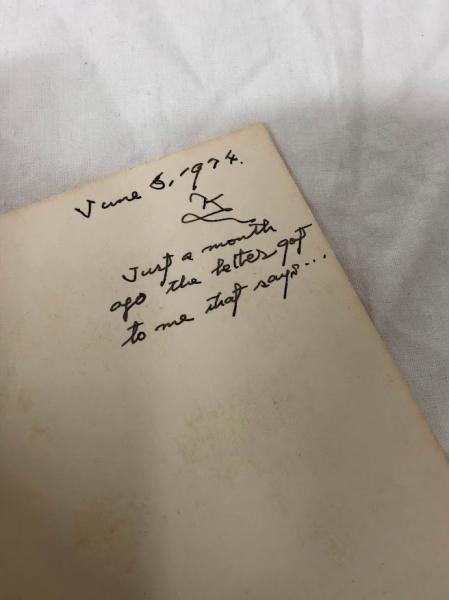 June 6, 1974.
K
Just a month
ago the letter got
to me that says...